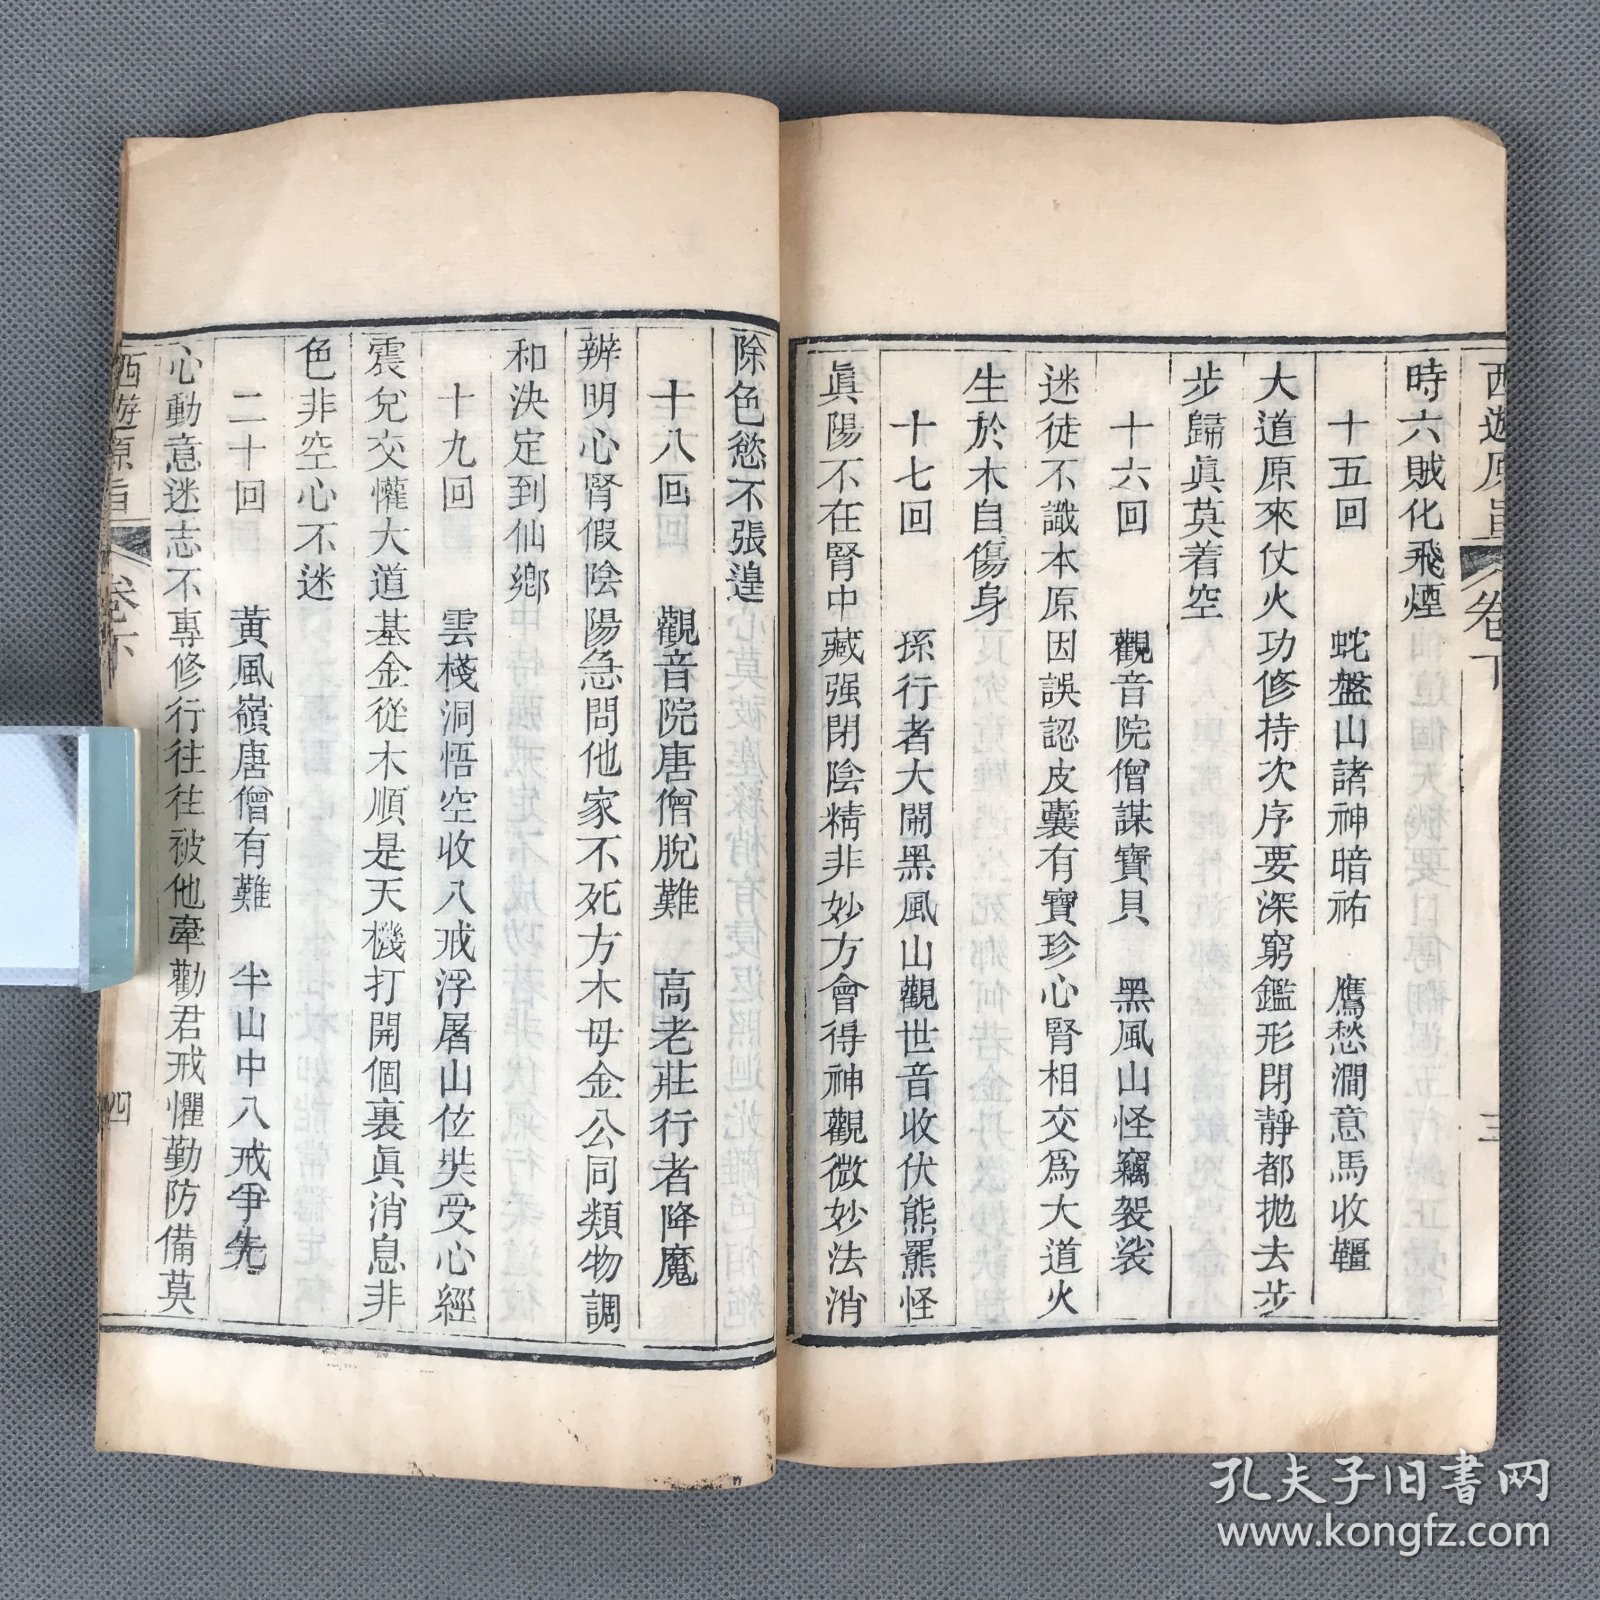 西遊原旨 卷下 三
時六賊化飛煙
十五回 蛇盤山諸神暗祐 鷹愁澗意馬收韁
大道原來仗火功修持次序要深窮鑑形閉靜都拋去步
步歸眞莫着空
十六回 觀音院僧謀寶貝 黑風山怪竊袈裟
迷徒不識本原因誤認皮囊有寶珍心腎相交爲大道火
生於木自傷身
十七回 孫行者大閙黑風山觀世音收伏熊羆怪
眞陽不在腎中藏强閉陰精非妙方會得神觀微妙法消
除色慾不張遑
十八回 觀音院唐僧脫難 高老莊行者降魔
辨明心腎假陰陽急問他家不死方木母金公同類物調
和決定到仙鄉
十九回 雲棧洞悟空收八戒浮屠山位奘受心經
震兌交懽大道基金從木順是天機打開個裏眞消息非
色非空心不迷
二十回 黃風嶺唐僧有難 半山中八戒爭先
心動意迷志不專修行往往被他牽勸君戒懼勤防備莫
西遊原旨 卷下 四
孔夫子旧书网
www.kongfz.com